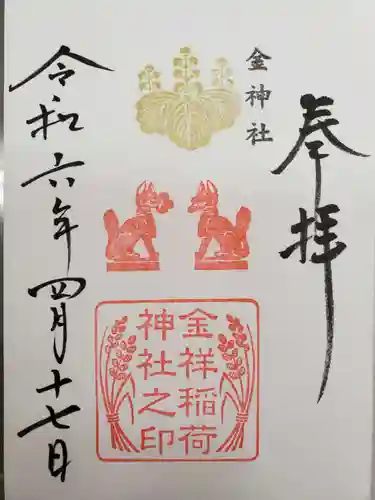 奉拝
金神社
金祥稲荷
神社之印
令和六年四月十七日